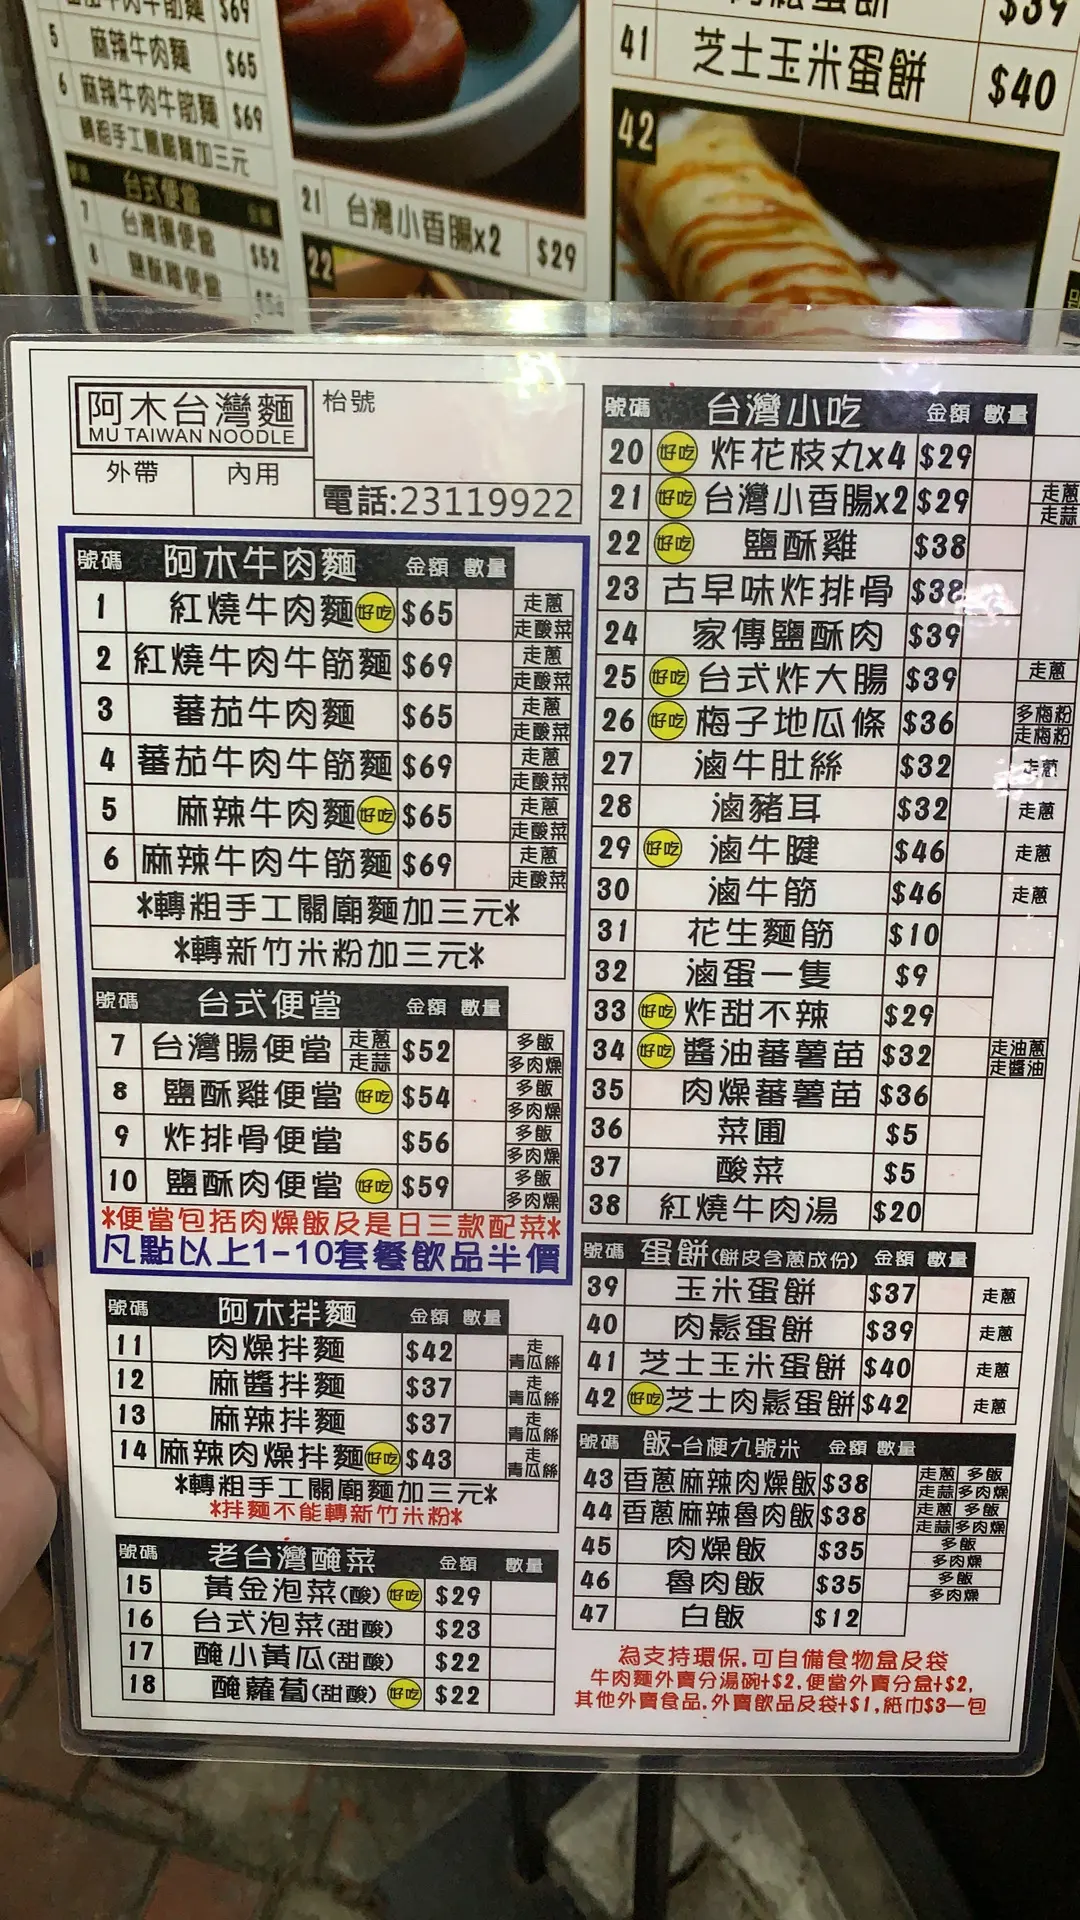 $69
5 麻辣牛肉麵 $65
6 麻辣牛肉牛筋麵 $69
轉粗手工關廟麵加三元
台式便當
7 台灣腸便當 $52
8 鹽酥雞便當 $54
21 台灣小香腸x2 $29
22
$39
41 芝士玉米蛋餅 $40
42
阿木台灣麵
MU TAIWAN NOODLE
枱號
外帶 內用
電話:23119922
號碼 阿木牛肉麵 金額 數量
1 紅燒牛肉麵 好吃 $65 走蔥 走酸菜
2 紅燒牛肉牛筋麵 $69 走蔥 走酸菜
3 蕃茄牛肉麵 $65 走蔥 走酸菜
4 蕃茄牛肉牛筋麵 $69 走蔥 走酸菜
5 麻辣牛肉麵 好吃 $65 走蔥 走酸菜
6 麻辣牛肉牛筋麵 $69 走蔥 走酸菜
*轉粗手工關廟麵加三元*
*轉新竹米粉加三元*
號碼 台式便當 金額 數量
7 台灣腸便當 走蔥 走蒜 $52 多飯 多肉燥
8 鹽酥雞便當 好吃 $54 多飯 多肉燥
9 炸排骨便當 $56 多飯 多肉燥
10 鹽酥肉便當 好吃 $59 多飯 多肉燥
*便當包括肉燥飯及是日三款配菜*
凡點以上1-10套餐飲品半價
號碼 阿木拌麵 金額 數量
11 肉燥拌麵 $42 走青瓜絲
12 麻醬拌麵 $37 走青瓜絲
13 麻辣拌麵 $37 走青瓜絲
14 麻辣肉燥拌麵 好吃 $43 走青瓜絲
*轉粗手工關廟麵加三元*
*拌麵不能轉新竹米粉*
號碼 老台灣醃菜 金額 數量
15 黃金泡菜(酸) 好吃 $29
16 台式泡菜(甜酸) $23
17 醃小黃瓜(甜酸) $22
18 醃蘿蔔(甜酸) 好吃 $22
號碼 台灣小吃 金額 數量
20 好吃 炸花枝丸x4 $29
21 好吃 台灣小香腸x2 $29 走蔥 走蒜
22 好吃 鹽酥雞 $38
23 古早味炸排骨 $38
24 家傳鹽酥肉 $39
25 好吃 台式炸大腸 $39 走蔥
26 好吃 梅子地瓜條 $36 多梅粉 走梅粉
27 滷牛肚絲 $32 走蔥
28 滷豬耳 $32 走蔥
29 好吃 滷牛腱 $46 走蔥
30 滷牛筋 $46 走蔥
31 花生麵筋 $10
32 滷蛋一隻 $9
33 好吃 炸甜不辣 $29
34 好吃 醬油蕃薯苗 $32 走油蔥 走醬油
35 肉燥蕃薯苗 $36
36 菜圃 $5
37 酸菜 $5
38 紅燒牛肉湯 $20
號碼 蛋餅(餅皮含蔥成份) 金額 數量
39 玉米蛋餅 $37 走蔥
40 肉鬆蛋餅 $39 走蔥
41 芝士玉米蛋餅 $40 走蔥
42 好吃 芝士肉鬆蛋餅 $42 走蔥
號碼 飯-台梗九號米 金額 數量
43 香蔥麻辣肉燥飯 $38 走蔥 多飯 走蒜 多肉燥
44 香蔥麻辣魯肉飯 $38 走蔥 多飯 走蒜 多肉燥
45 肉燥飯 $35 多飯 多肉燥
46 魯肉飯 $35 多飯 多肉燥
47 白飯 $12
為支持環保.可自備食物盒及袋
牛肉麵外賣分湯碗+$2,便當外賣分盒+$2,
其他外賣食品.外賣飲品及袋+$1,紙巾$3一包